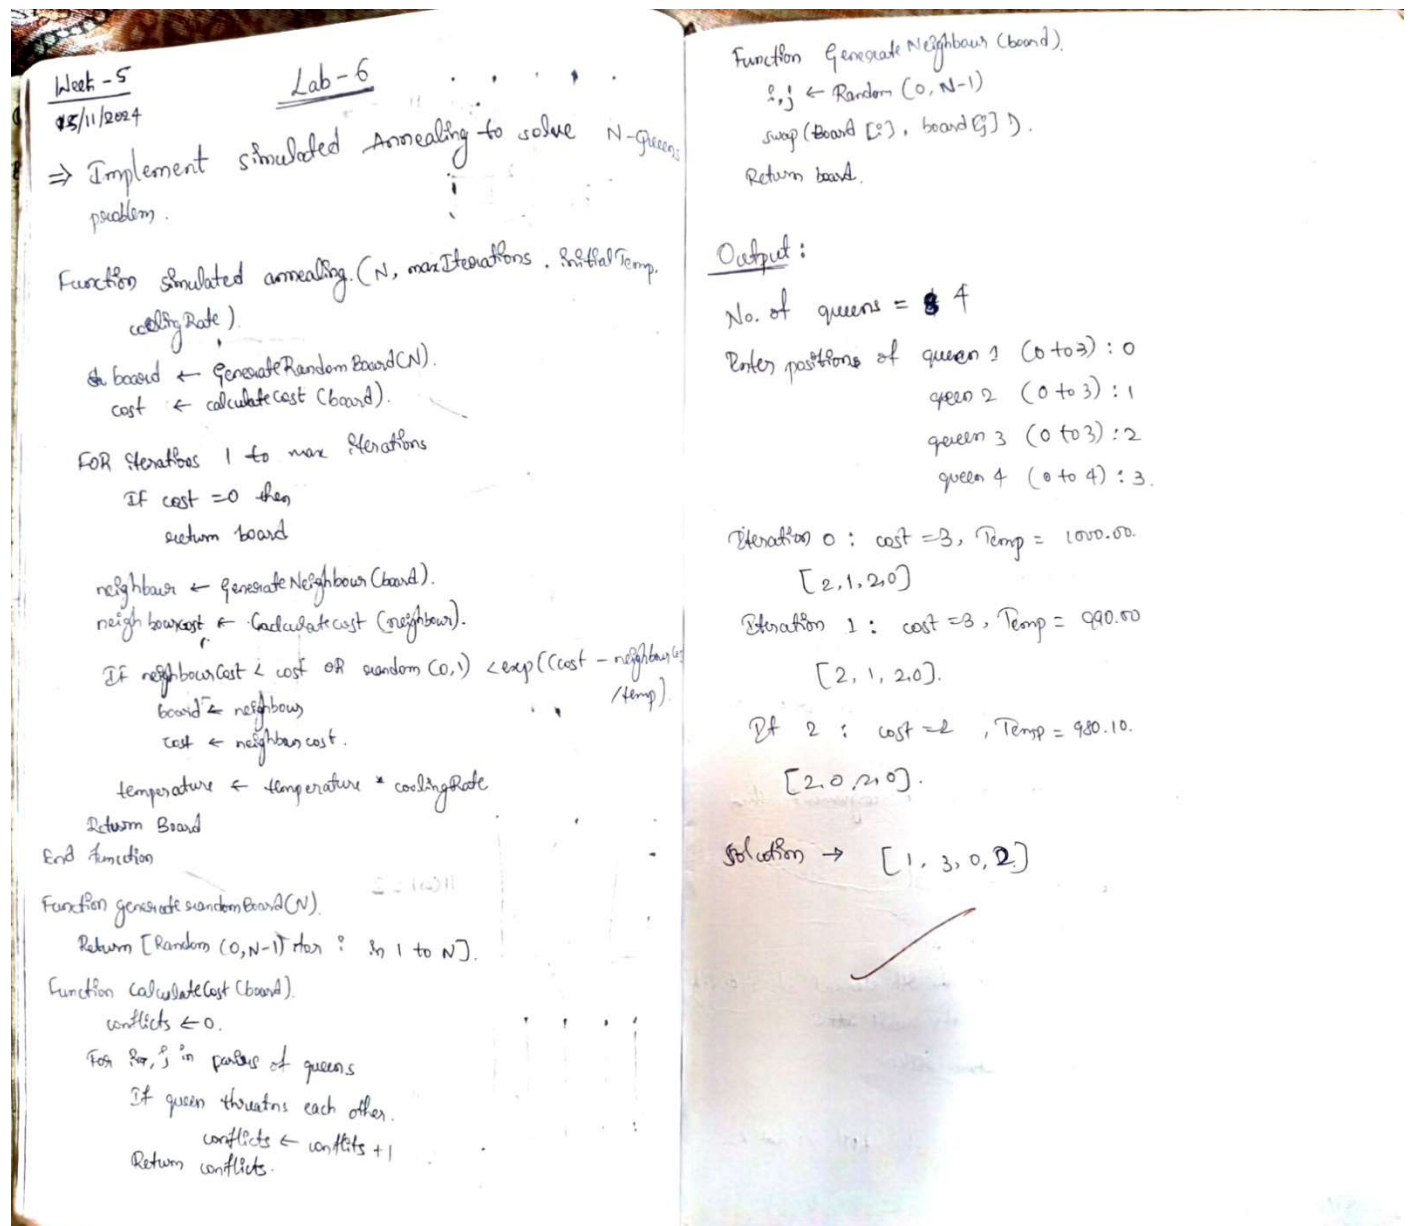 Week-5
15/11/2024
Lab-6
⇒ Implement simulated Annealing to solve N-Queens
problem.
Function simulated annealing.(N, maxIterations. initialTemp.
coolingRate)
board ← GenerateRandomBoard(N).
cost ← calculatecost (board).
FOR iterations 1 to max iterations
If cost =0 then
return board
neighbour ← generateNeighbour(board).
neighbourcost ← Calculatecost (neighbour).
If neighbourCost < cost OR random (0,1) <exp((cost - neighbour
/temp)
board ← neighbour
cost ← neighbourcost.
temperature ← temperature * coolingRate
Return Board
End function
Function generate randomBoard(N).
Return [Random (0,N-1) for i in 1 to N].
Function CalculateCost (board).
conflicts ← 0.
For , j in of queens
If queen threatns each other.
conflicts ← conflits +1
Return conflicts.
Function GenerateNeighbour (board).
i,j ← Random (0, N-1)
swap (Board [i], board [j]).
Return board.
Output:
No. of queens = 4
Enter positions of queen 1 (0 to3) : 0
queen 2 (0 to 3) : 1
queen 3 (0 to3) : 2
queen 4 (0 to 4) : 3.
Iteration 0 : cost =3, Temp = 1000.00.
[2,1,2,0]
Iteration 1 : cost =3, Temp = 990.00
[2, 1, 2,0].
It 2 : cost = , Temp = 980.10.
[2,0,2,0].
Solution → [1, 3, 0, 2]